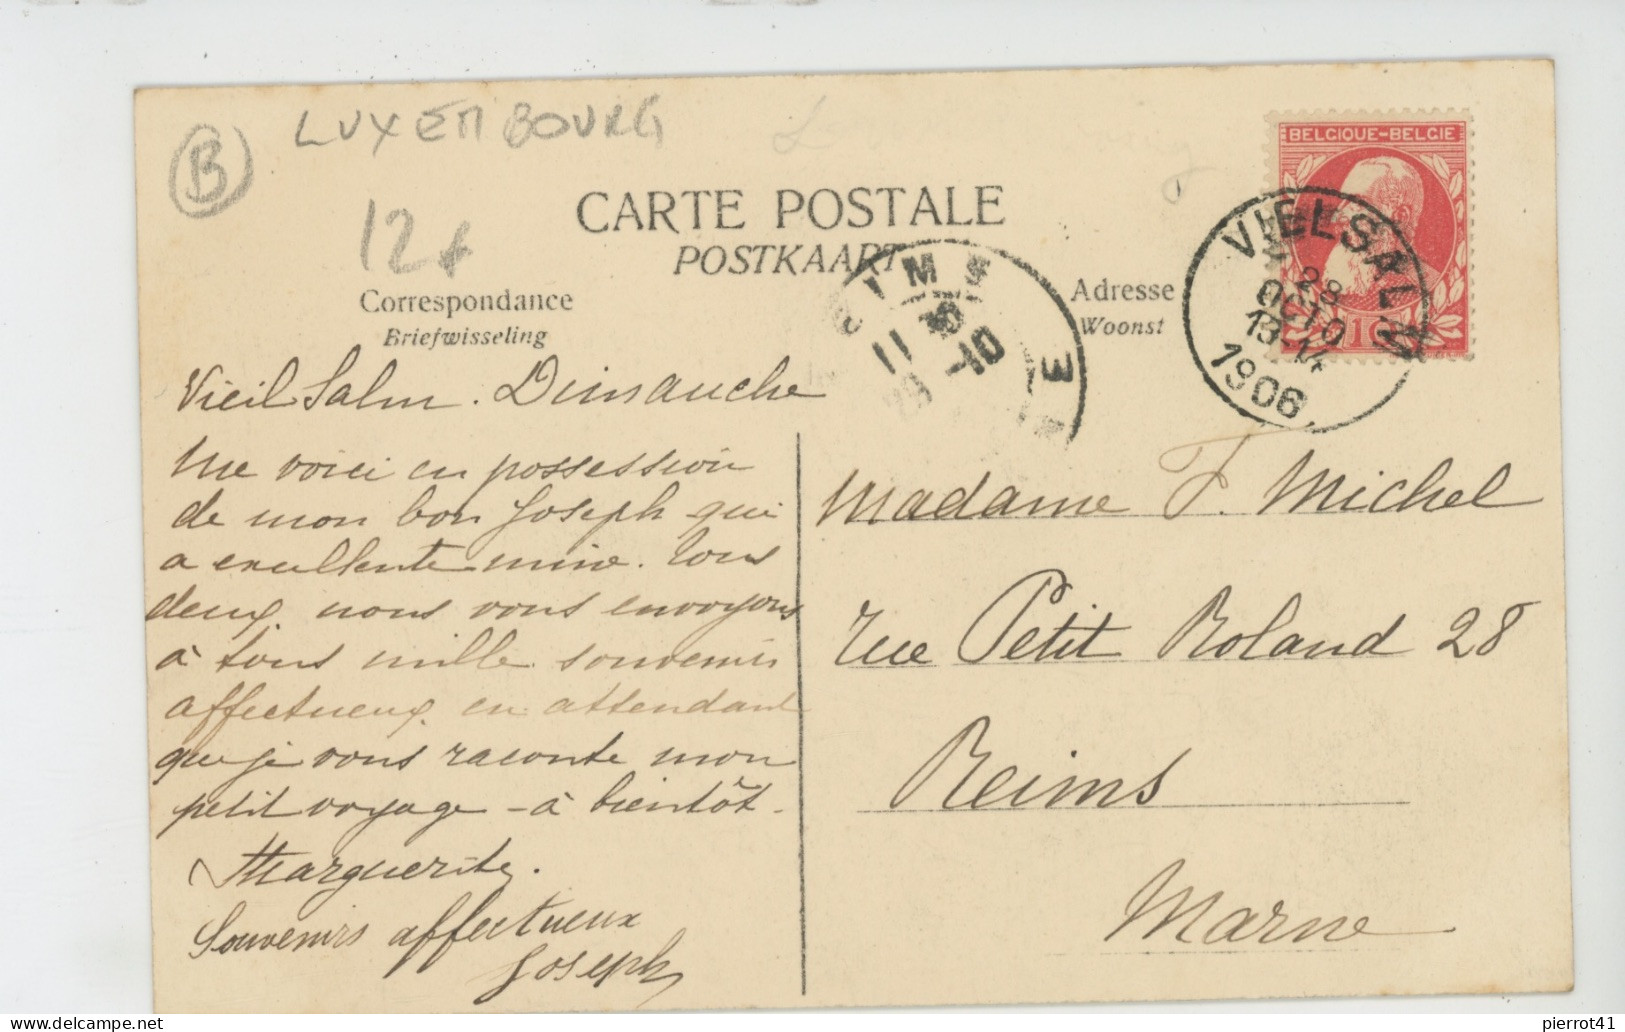 LUXEMBOURG
B
12f
CARTE POSTALE
POSTKAART
Correspondance
Briefwisseling
Adresse
Woonst
BELGIQUE-BELGIE
VIELSALM
28
OCTO
13-14
1906
11 30
29 -10
Vieil Salm. Dimanche
Me voici en possession
de mon bon Joseph qui
a excellente mine. Tous
deux nous vous envoyons
à tous mille souvenirs
affectueux en attendant
que je vous raconte mon
petit voyage - à bientôt.
Marguerite.
Souvenirs affectueux
Joseph
Madame F. Michel
rue Petit Roland 28
Reims
Marne
pierrot41